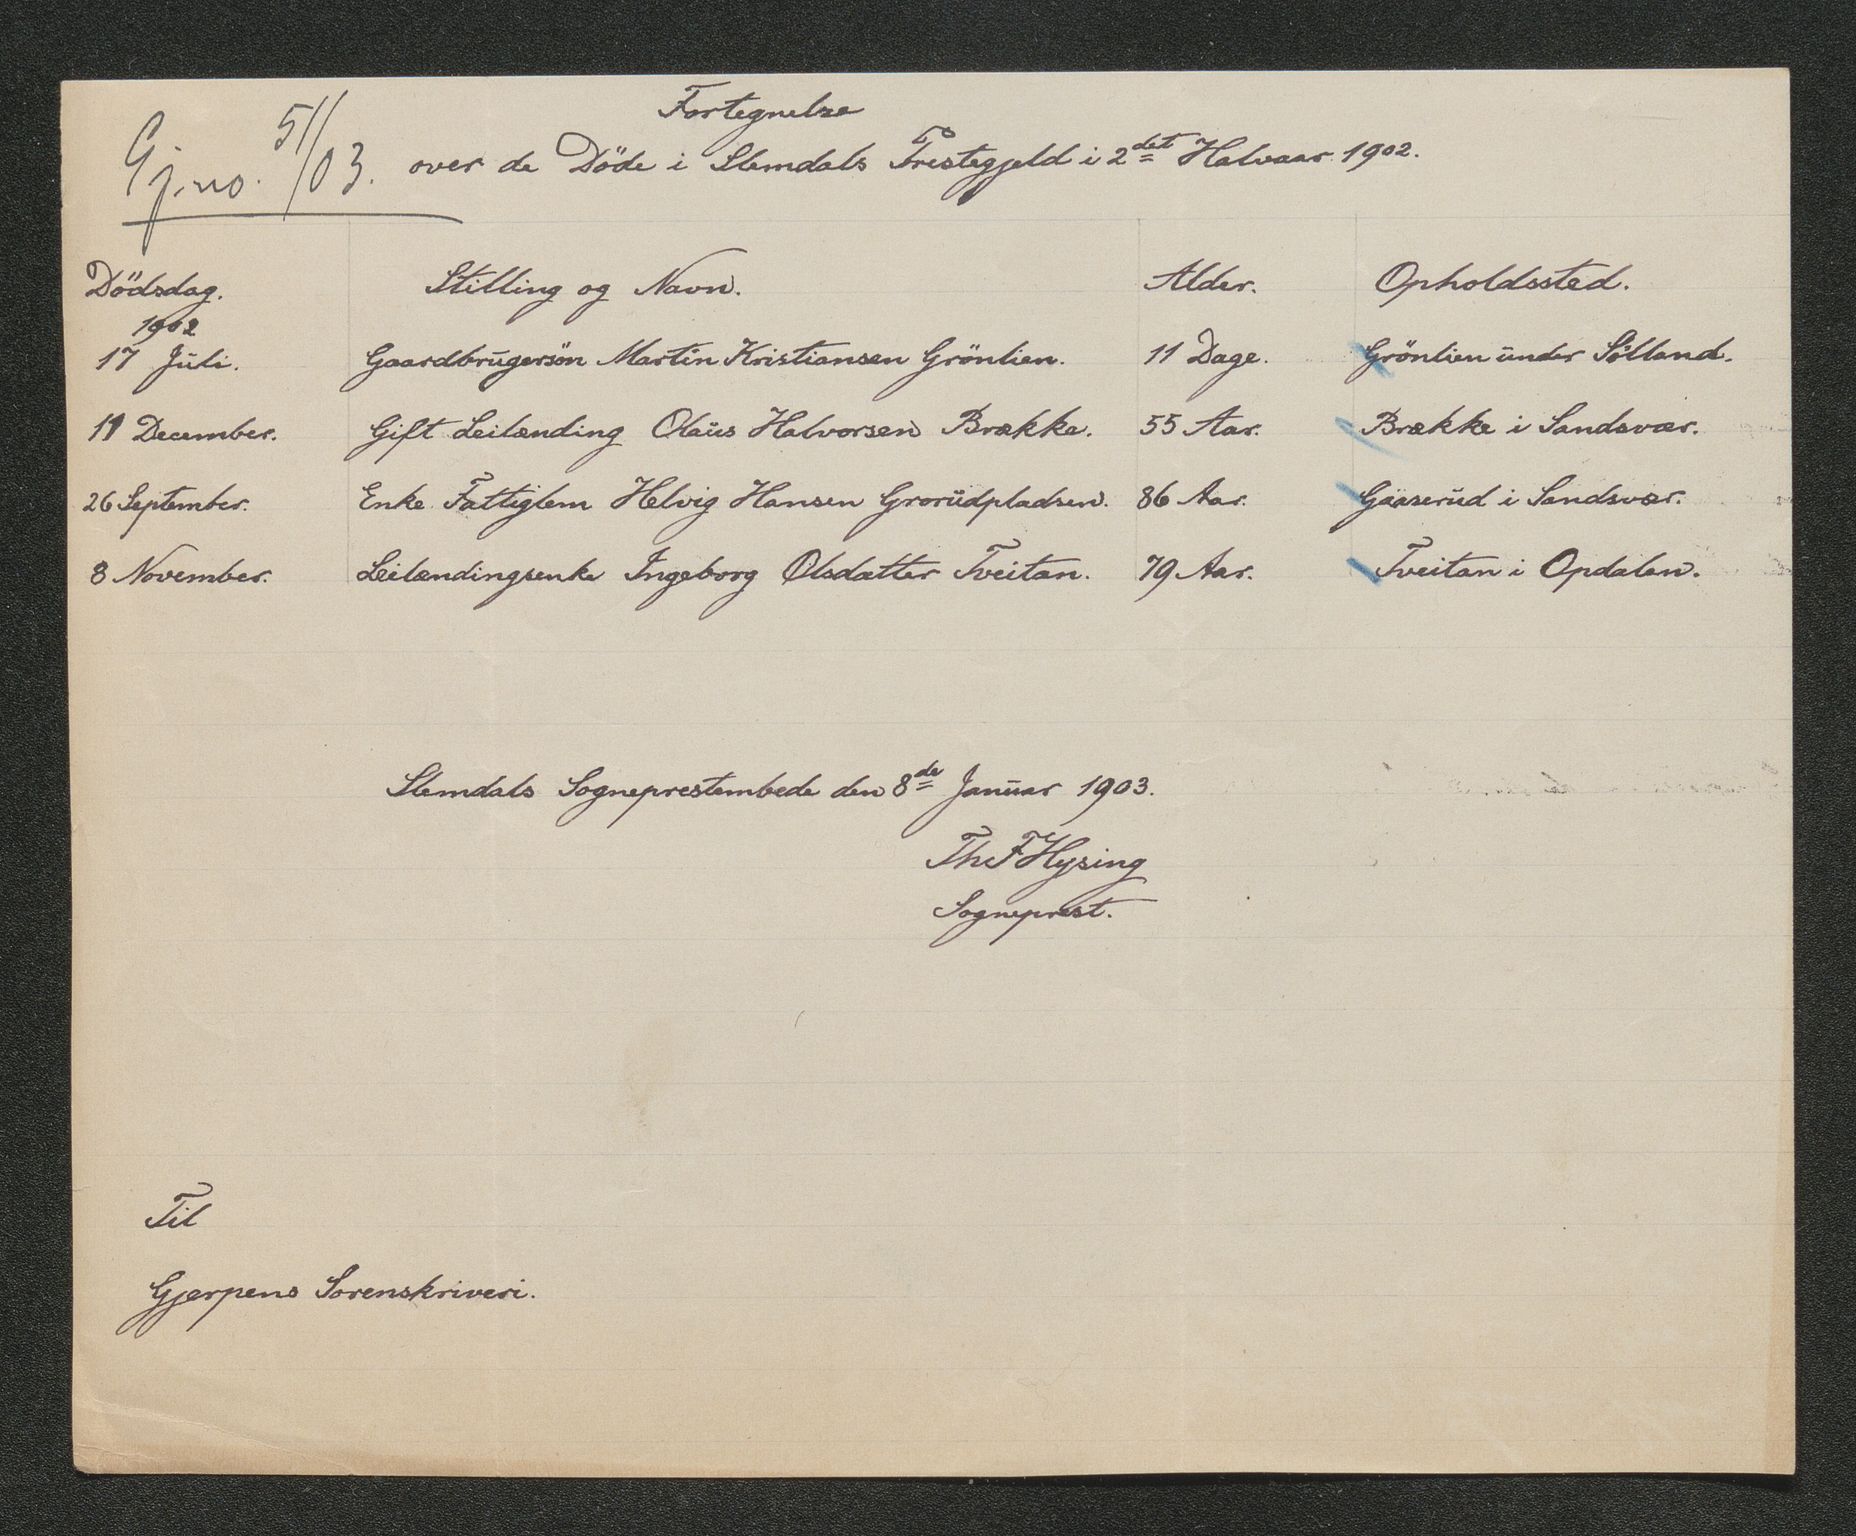 Fortegnelse
Gj.no. 51/03. over de Döde i Slemdals Prestegjeld i 2det Halvaar 1902.
Dödsdag. Stilling og Navn. Alder. Opholdssted.
1902
17 Juli. Gaardbrugersön Martin Kristiansen Grönlien. 11 Dage. Grönlien under Sölland.
11 December. Gift Leilænding Olaus Halvorsen Brække. 55 Aar. Brække i Sandsvær.
26 September. Enke Fattiglem Helvig Hansen Grorudpladsen. 86 Aar. Gaaserud i Sandsvær.
8 November. Leilændingsenke Ingeborg Olsdatter Tveitan. 79 Aar. Tveitan i Opdalen.
Slemdals Sogneprestembede den 8de Januar 1903.
Th F Hysing
Sogneprest.
Til
Gjerpens Sorenskriveri.